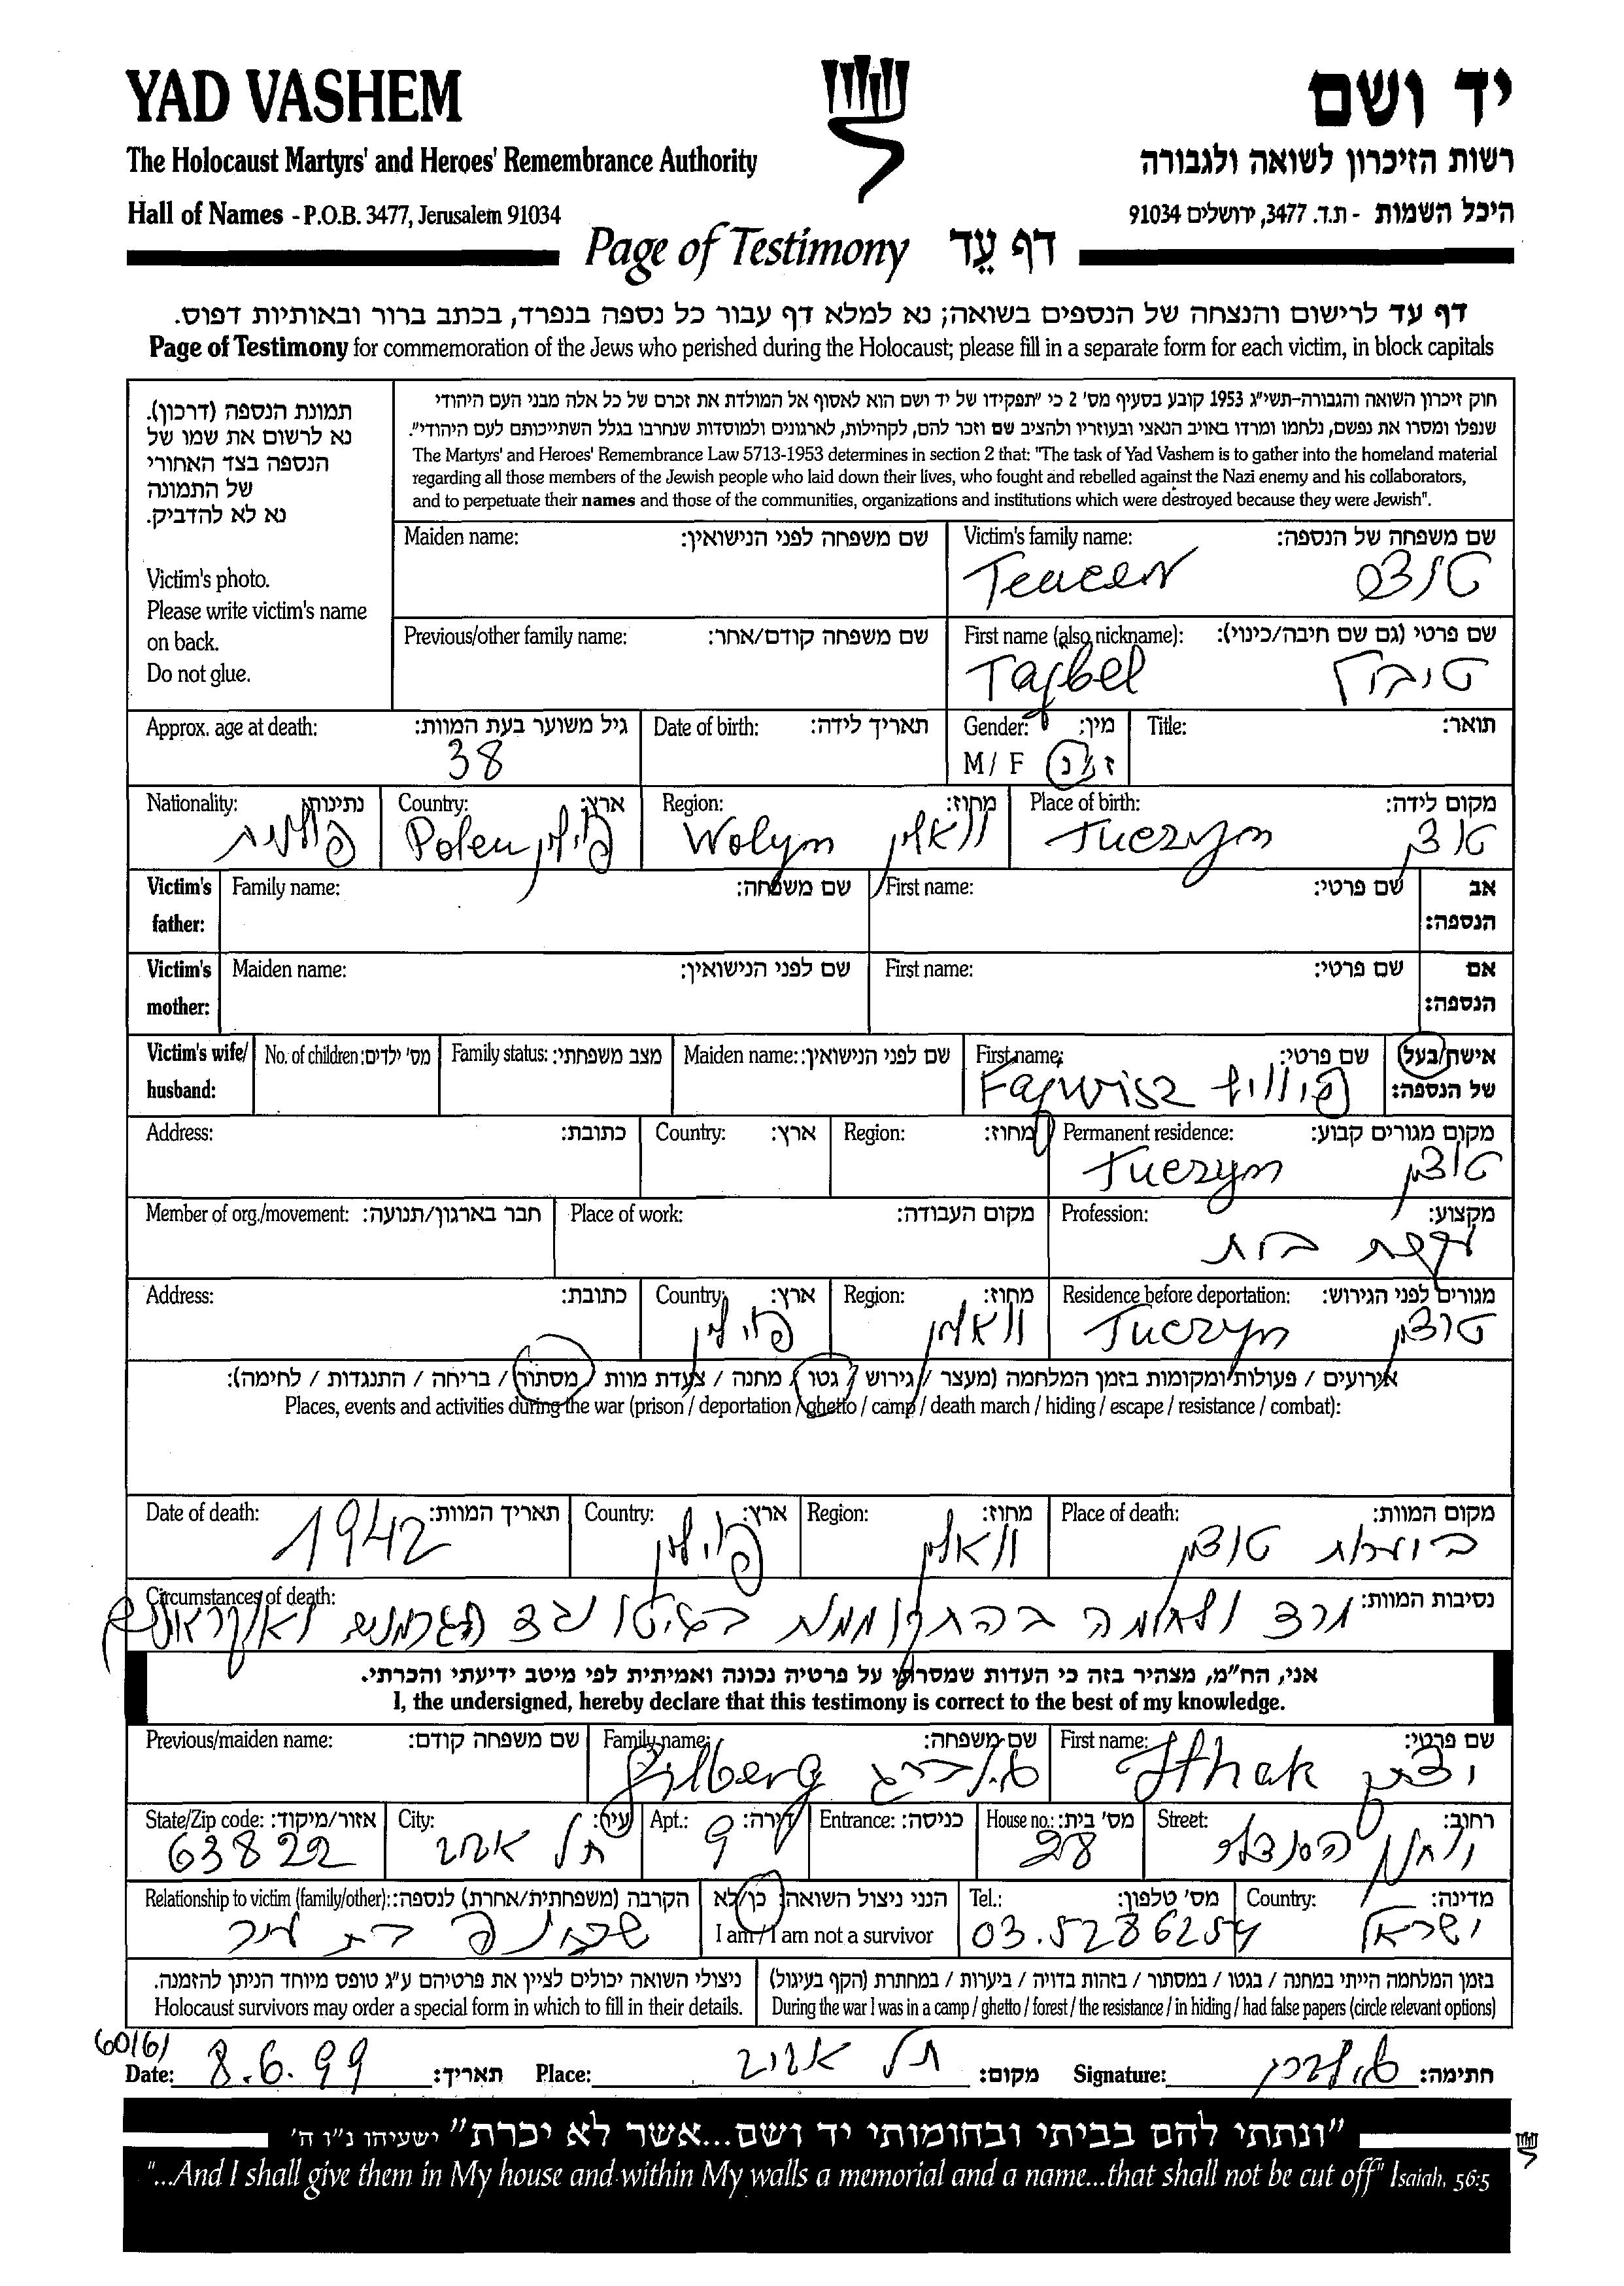 YAD VASHEM יד ושם
The Holocaust Martyrs' and Heroes' Remembrance Authority רשות הזיכרון לשואה ולגבורה
Hall of Names - P.O.B. 3477, Jerusalem 91034 היכל השמות - ת.ד. 3477, ירושלים 91034
Page of Testimony דף עֵד
דף עד לרישום והנצחה של הנספים בשואה; נא למלא דף עבור כל נספה בנפרד, בכתב ברור ובאותיות דפוס.
Page of Testimony for commemoration of the Jews who perished during the Holocaust; please fill in a separate form for each victim, in block capitals
תמונת הנספה (דרכון).
נא לרשום את שמו של
הנספה בצד האחורי
של התמונה
נא לא להדביק.
Victim's photo.
Please write victim's name
on back.
Do not glue.
חוק זיכרון השואה והגבורה-תשי"ג 1953 קובע בסעיף מס' 2 כי "תפקידו של יד ושם הוא לאסוף אל המולדת את זכרם של כל אלה מבני העם היהודי
שנפלו ומסרו את נפשם, נלחמו ומרדו באויב הנאצי ובעוזריו ולהציב שם וזכר להם, לקהילות, לארגונים ולמוסדות שנחרבו בגלל השתייכותם לעם היהודי".
The Martyrs' and Heroes' Remembrance Law 5713-1953 determines in section 2 that: "The task of Yad Vashem is to gather into the homeland material
regarding all those members of the Jewish people who laid down their lives, who fought and rebelled against the Nazi enemy and his collaborators,
and to perpetuate their names and those of the communities, organizations and institutions which were destroyed because they were Jewish".
Maiden name: שם משפחה לפני הנישואין: Victim's family name: שם משפחה של הנספה:
Previous/other family name: שם משפחה קודם/אחר: First name (also nickname): שם פרטי (גם שם חיבה/כינוי):
Tajbel טייבל
Approx. age at death: גיל משוער בעת המוות: Date of birth: תאריך לידה: Gender: מין: Title: תואר:
38 M / F ז / נ
Nationality: נתינות: Country: ארץ: Region: מחוז: Place of birth: מקום לידה:
פולנית Polen פוילן Wolyn וואלין Tuczyn טוצין
Victim's father: Family name: שם משפחה: First name: שם פרטי: אב הנספה:
Victim's mother: Maiden name: שם לפני הנישואין: First name: שם פרטי: אם הנספה:
Victim's wife/ husband: No. of children: מס' ילדים: Family status: מצב משפחתי: Maiden name: שם לפני הנישואין: First name: שם פרטי: אישה/בעל של הנספה:
Fajwisz פייוויש
Address: כתובת: Country: ארץ: Region: מחוז: Permanent residence: מקום מגורים קבוע:
Tuczyn טוצין
Member of org./movement: חבר בארגון/תנועה: Place of work: מקום העבודה: Profession: מקצוע:
עקרת בית
Address: כתובת: Country: ארץ: Region: מחוז: Residence before deportation: מגורים לפני הגירוש:
פוילן וואלין Tuczyn טוצין
אירועים / פעולות ומקומות בזמן המלחמה (מעצר / גירוש / גטו / מחנה / צעדת מוות / מסתור / בריחה / התנגדות / לחימה):
Places, events and activities during the war (prison / deportation / ghetto / camp / death march / hiding / escape / resistance / combat):
Date of death: תאריך המוות: Country: ארץ: Region: מחוז: Place of death: מקום המוות:
1942 פוילן וואלין ביערות טוצין
Circumstances of death: נסיבות המוות:
מרד ולחימה בהתקוממות בגיטו נגד הגרמנים ואוקראינים
אני, הח"מ, מצהיר בזה כי העדות שמסרתי על פרטיה נכונה ואמיתית לפי מיטב ידיעתי והכרתי.
I, the undersigned, hereby declare that this testimony is correct to the best of my knowledge.
Previous/maiden name: שם משפחה קודם: Family name: שם משפחה: First name: שם פרטי:
Zilberg זילברג Ithak יצחק
State/Zip code: אזור/מיקוד: City: עיר: Apt.: דירה: Entrance: כניסה: House no.: מס' בית: Street: רחוב:
63822 תל אביב 9 28 יוחנן הסנדלר
Relationship to victim (family/other): הקרבה (משפחתית/אחרת) לנספה: הנני ניצול השואה: כן/לא Tel.: מס' טלפון: Country: מדינה:
I am / I am not a survivor
03.5286254 ישראל
ניצולי השואה יכולים לציין את פרטיהם ע"ג טופס מיוחד הניתן להזמנה. בזמן המלחמה הייתי במחנה / בגטו / במסתור / בזהות בדויה / ביערות / במחתרת (הקף בעיגול)
Holocaust survivors may order a special form in which to fill in their details. During the war I was in a camp / ghetto / forest / the resistance / in hiding / had false papers (circle relevant options)
Date: 8.6.99 תאריך: Place: תל אביב מקום: Signature: זילברג חתימה:
"ונתתי להם בביתי ובחומותי יד ושם...אשר לא יכרת" ישעיהו נ"ו ה'
"...And I shall give them in My house and within My walls a memorial and a name...that shall not be cut off" Isaiah, 56:5